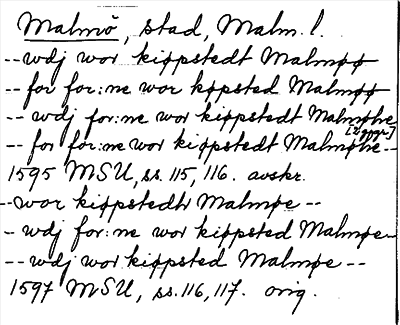 Malmö, stad, Malm. l.
-- wdj wor kiøpstedt Malmøø
-- for for:ne wor køpsted Malmøø
-- wdj for:ne wor kiøpstedt Malmøhe
[2 ggr]
-- for for:ne wor kiøpstedt Malmøhe --
1595 MSU, ss. 115, 116. avskr.
-- wor kiøpstedtt Malmøe --
-- wdj for:ne wor kiøpsted Malmøe --
-- wdj wor kiøpsted Malmøe --
1597 MSU, ss. 116, 117. orig.